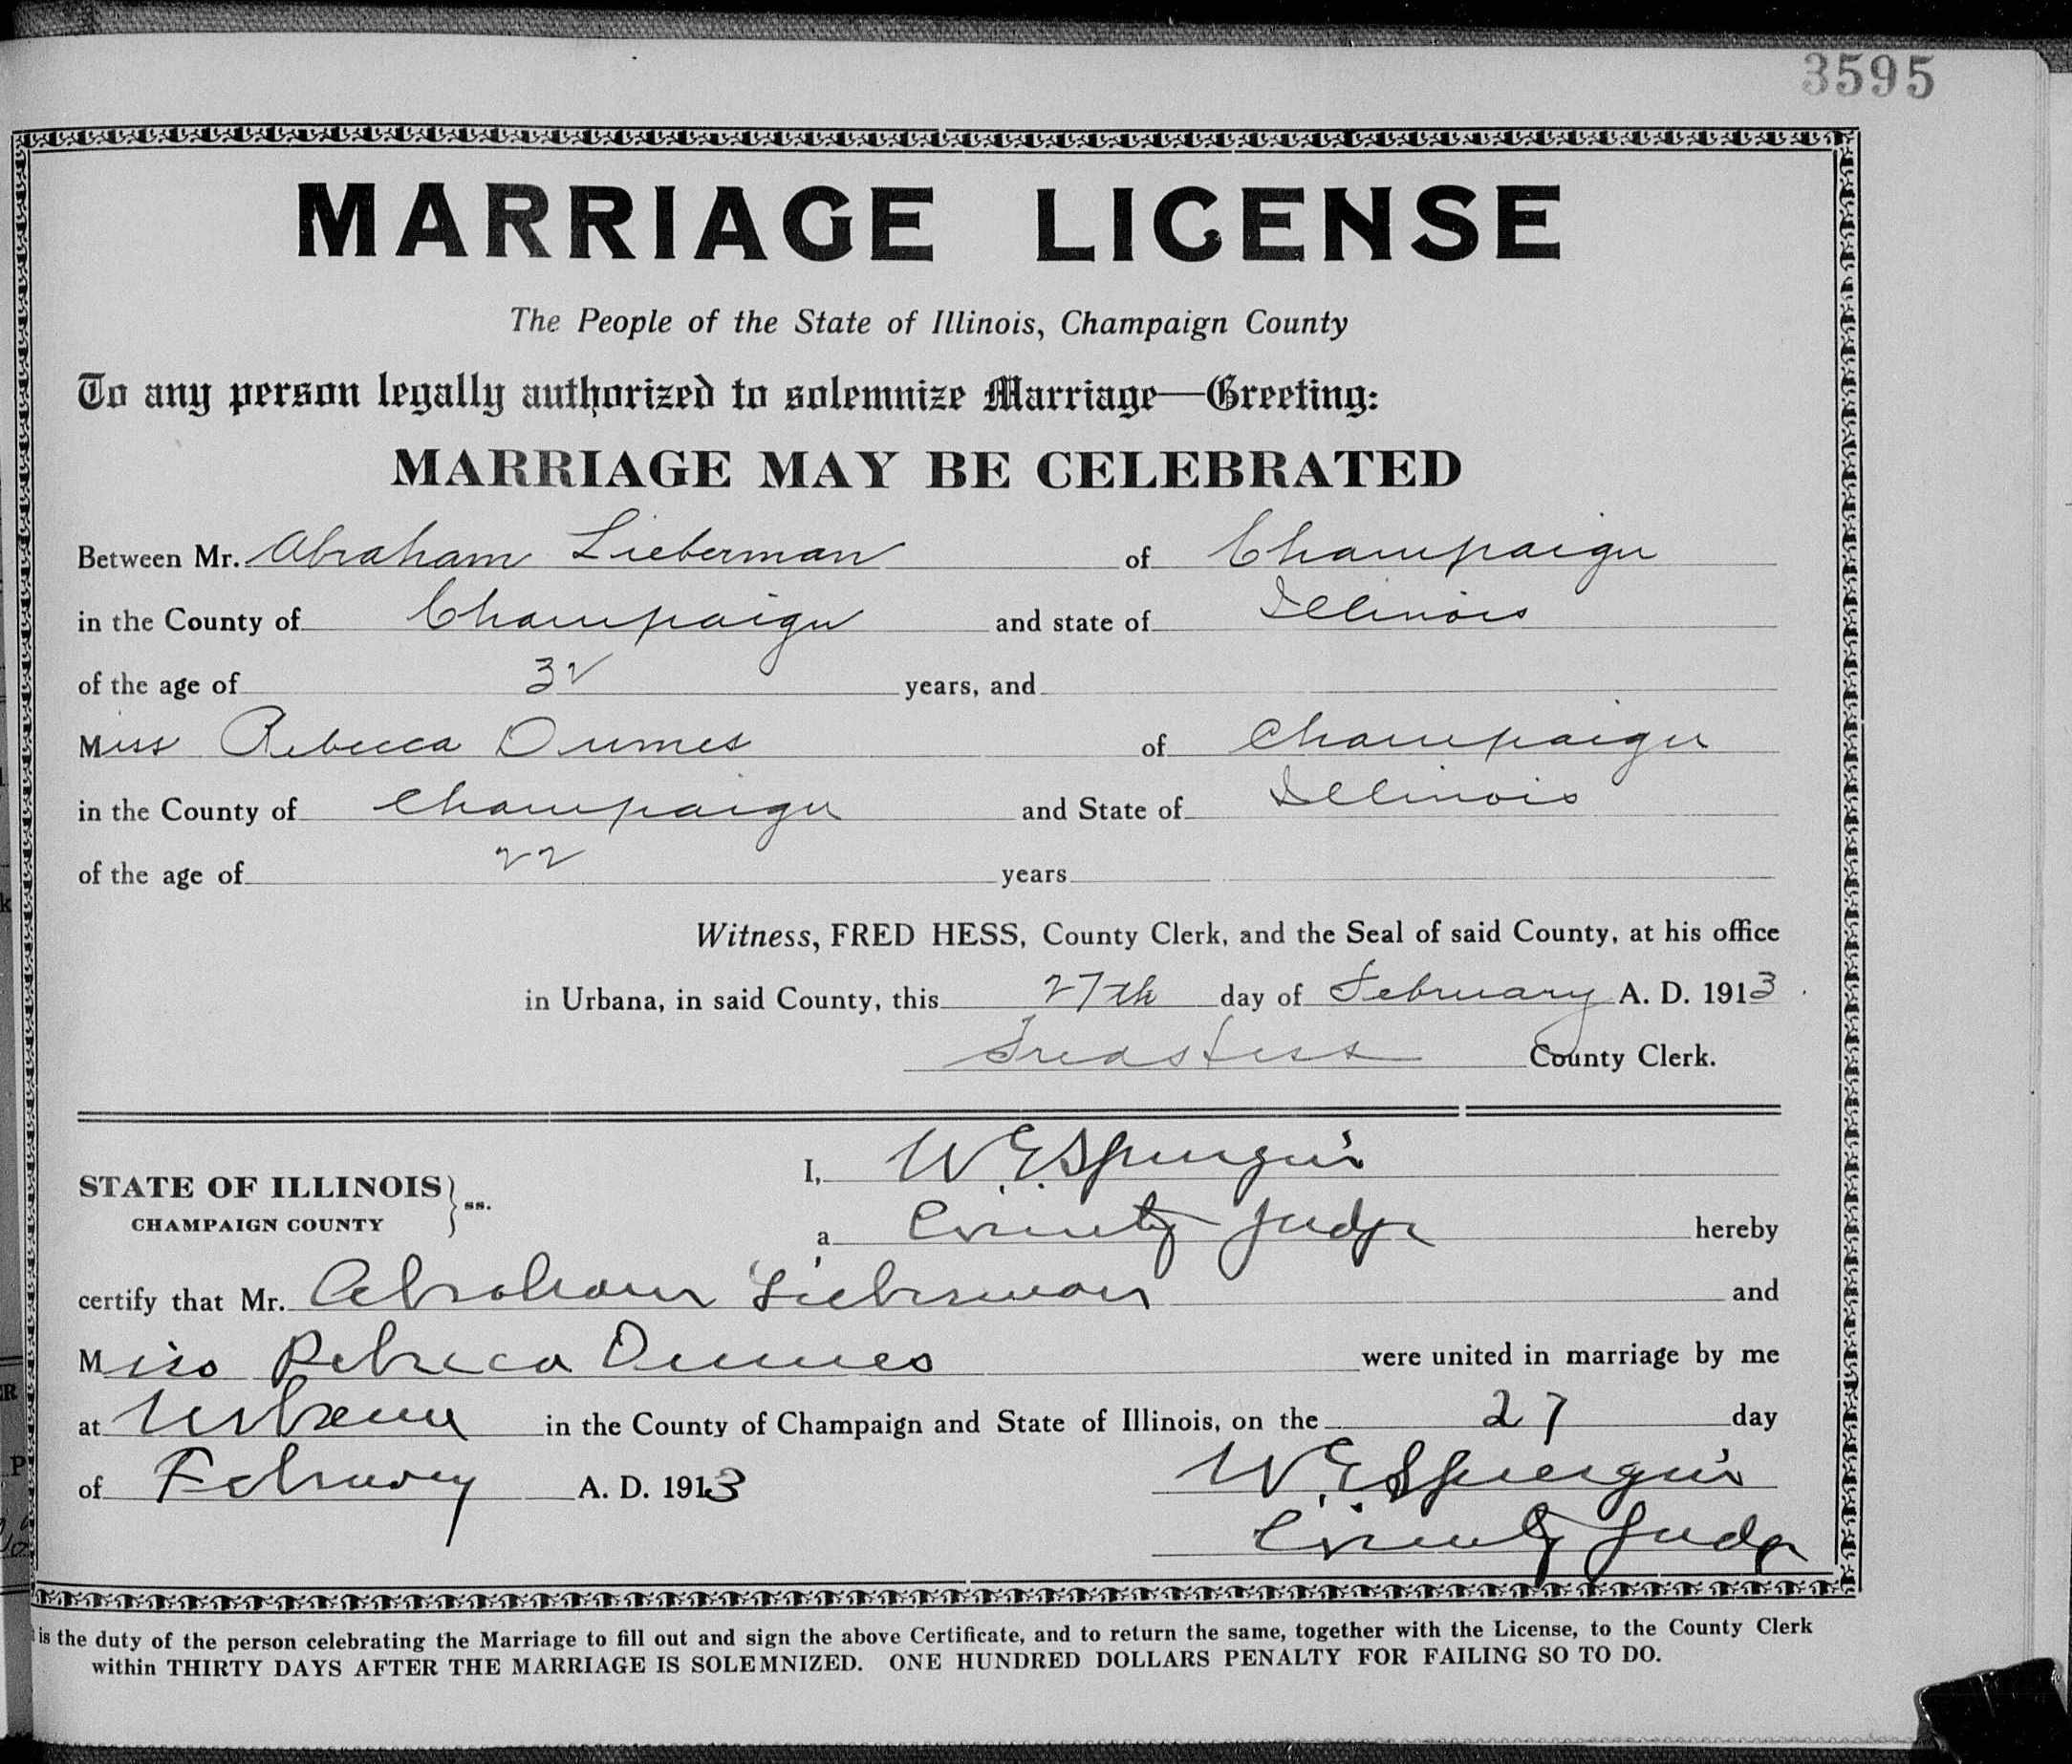 3595
MARRIAGE LICENSE
The People of the State of Illinois, Champaign County
To any person legally authorized to solemnize Marriage—Greeting:
MARRIAGE MAY BE CELEBRATED
Between Mr. Abraham Lieberman of Champaign
in the County of Champaign and state of Illinois
of the age of 32 years, and
Miss Rebecca Dumes of Champaign
in the County of Champaign and State of Illinois
of the age of 22 years
Witness, FRED HESS, County Clerk, and the Seal of said County, at his office
in Urbana, in said County, this 27th day of February A. D. 1913
Fred Hess County Clerk.
I, W.E. Spurgin
STATE OF ILLINOIS } ss.
CHAMPAIGN COUNTY
a County Judge hereby
certify that Mr. Abraham Lieberman and
Miss Rebecca Dumes were united in marriage by me
at Urbana in the County of Champaign and State of Illinois, on the 27 day
of February A. D. 1913 W.E. Spurgin
County Judge
is the duty of the person celebrating the Marriage to fill out and sign the above Certificate, and to return the same, together with the License, to the County Clerk
within THIRTY DAYS AFTER THE MARRIAGE IS SOLEMNIZED. ONE HUNDRED DOLLARS PENALTY FOR FAILING SO TO DO.